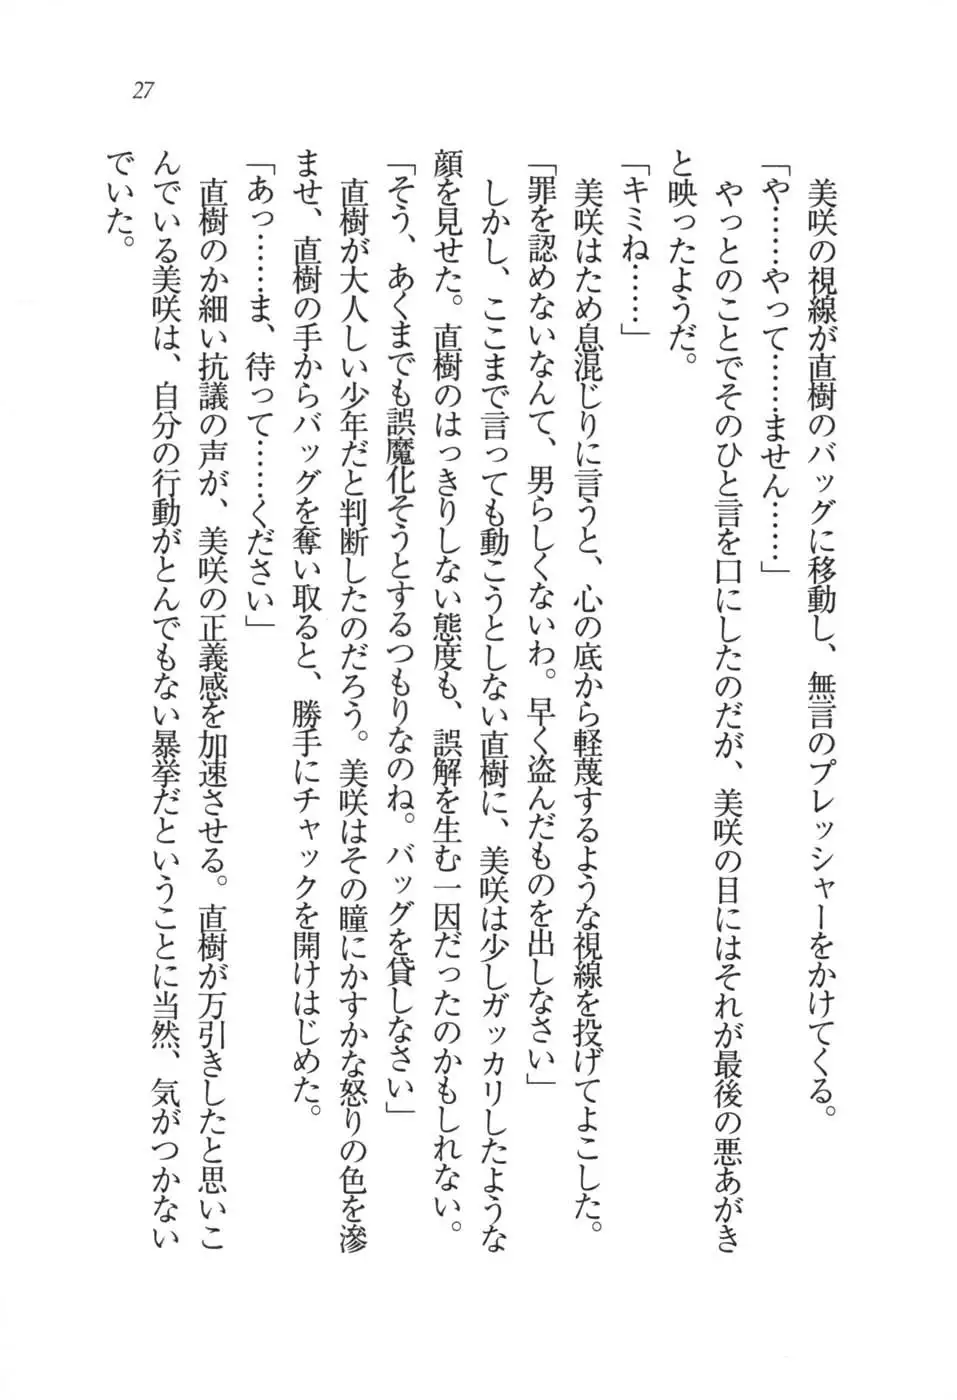 27
美咲の視線が直樹のバッグに移動し、無言のプレッシャーをかけてくる。
「や……やって……ません……」
やっとのことでそのひと言を口にしたのだが、美咲の目にはそれが最後の悪あがき
と映ったようだ。
「キミね……」
美咲はため息混じりに言うと、心の底から軽蔑するような視線を投げてよこした。
「罪を認めないなんて、男らしくないわ。早く盗んだものを出しなさい」
しかし、ここまで言っても動こうとしない直樹に、美咲は少しガッカリしたような
顔を見せた。直樹のはっきりしない態度も、誤解を生む一因だったのかもしれない。
「そう、あくまでも誤魔化そうとするつもりなのね。バッグを貸しなさい」
直樹が大人しい少年だと判断したのだろう。美咲はその瞳にかすかな怒りの色を滲
ませ、直樹の手からバッグを奪い取ると、勝手にチャックを開けはじめた。
「あっ……ま、待って……ください」
直樹のか細い抗議の声が、美咲の正義感を加速させる。直樹が万引きしたと思いこ
んでいる美咲は、自分の行動がとんでもない暴挙だということに当然、気がつかない
でいた。